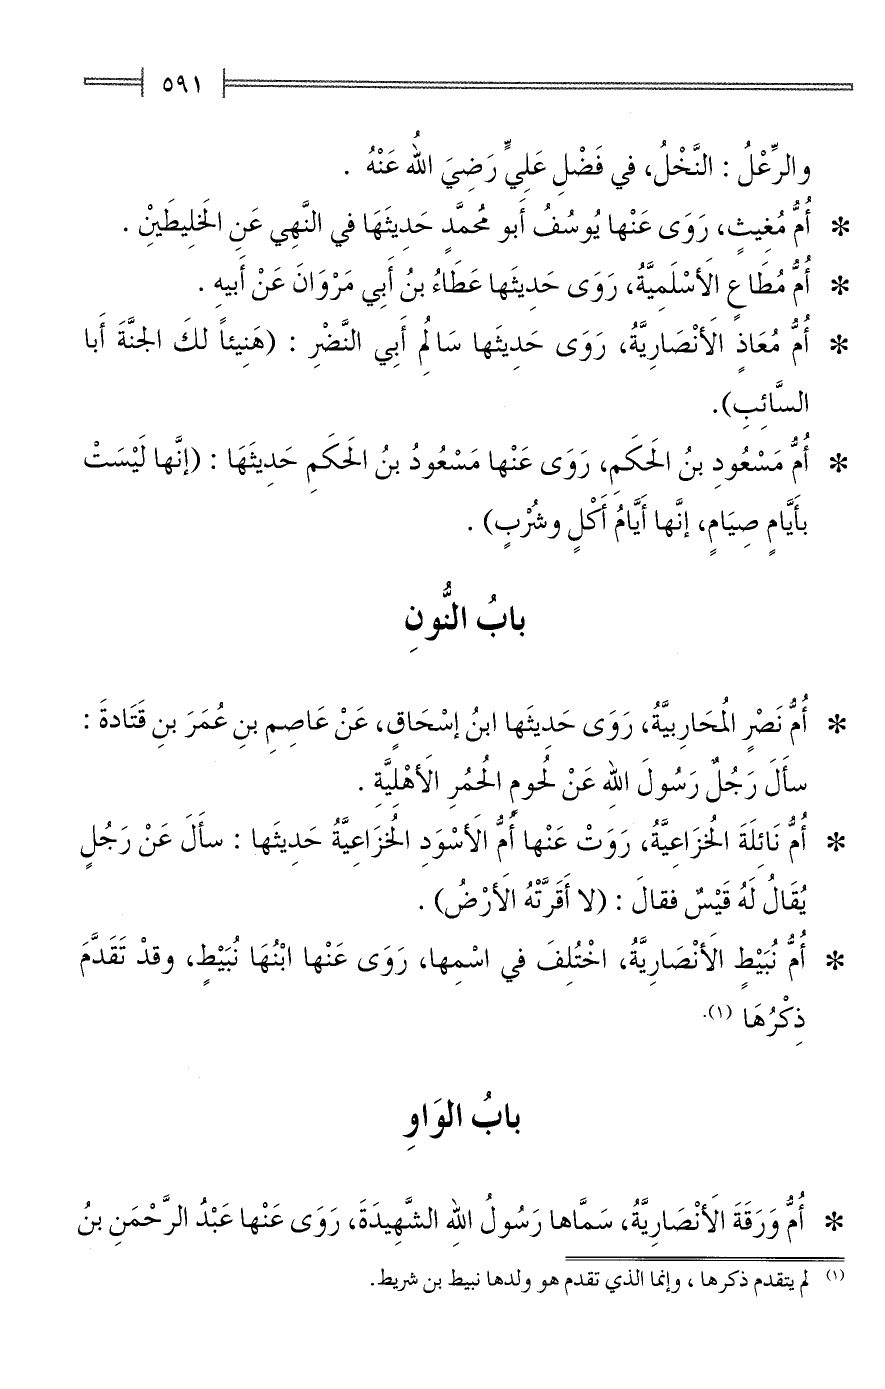 ٥٩١
والرِّعْلُ : النَّخْلُ، في فَضْلِ عَلِيٍّ رَضِيَ اللهُ عَنْهُ .
* أُمُّ مُغِيثٍ، رَوَى عَنْها يُوسُفُ أبو مُحمَّدٍ حَدِيثَهَا في النَّهِي عَنِ الخَلِيطَيْنْ .
* أُمُّ مُطَاعٍ الأَسْلَمِيَّةُ، رَوَى حَدِيثَها عَطَاءُ بنُ أَبي مَرْوَانَ عَنْ أَبيهِ .
* أُمُّ مُعَاذٍ الأَنْصَارِيَّةُ، رَوَى حَدِيثَها سَالِمُ أَبي النَّضْرِ : (هَنِيئاً لكَ الجنَّةَ أَبا
السَّائِبِ).
* أُمُّ مَسْعُودِ بنُ الحَكَمِ، رَوَى عَنْها مَسْعُودُ بنُ الحَكَمِ حَدِيثَهَا : (إنَّها لَيْسَتْ
بأَيَّامِ صِيَامٍ، إنَّها أيَّامُ أَكْلٍ وشُرْبٍ) .
بابُ النُّونِ
* أُمُّ نَصْرٍ المُحَارِبيَّةُ، رَوَى حَدِيثَها ابنُ إسْحَاقٍ، عَنْ عَاصِمِ بنِ عُمَرَ بنِ قَتَادةَ :
سأَلَ رَجُلٌ رَسُولَ اللهِ عَنْ لُحومِ الحُمُرِ الأَهْلِيَّةِ .
* أُمُّ نَائِلَةَ الخُزَاعِيَّةُ، رَوَتْ عَنْها أُمُّ الأَسْوَدِ الخُزَاعِيَّةُ حَدِيثَها : سأَلَ عَنْ رَجُلٍ
يُقَالُ لَهُ قَيْسٌ فقالَ : (لا أَقَرَّتْهُ الأَرْضُ) .
* أُمُّ نُبَيْطٍ الأَنْصَارِيَّةُ، اخْتُلِفَ في اسْمِها، رَوَى عَنْها ابْنُهَا نُبَيْطٍ، وقدْ تَقَدَّمَ
ذِكْرُهَا (١).
بابُ الوَاوِ
* أُمُّ وَرَقَةَ الأَنْصَارِيَّةُ، سَمَّاها رَسُولُ اللهِ الشَّهِيدَةَ، رَوَى عَنْها عَبْدُ الرَّحْمَنِ بنُ
(١) لم يتقدم ذكرها ، وإنما الذي تقدم هو ولدها نبيط بن شريط.